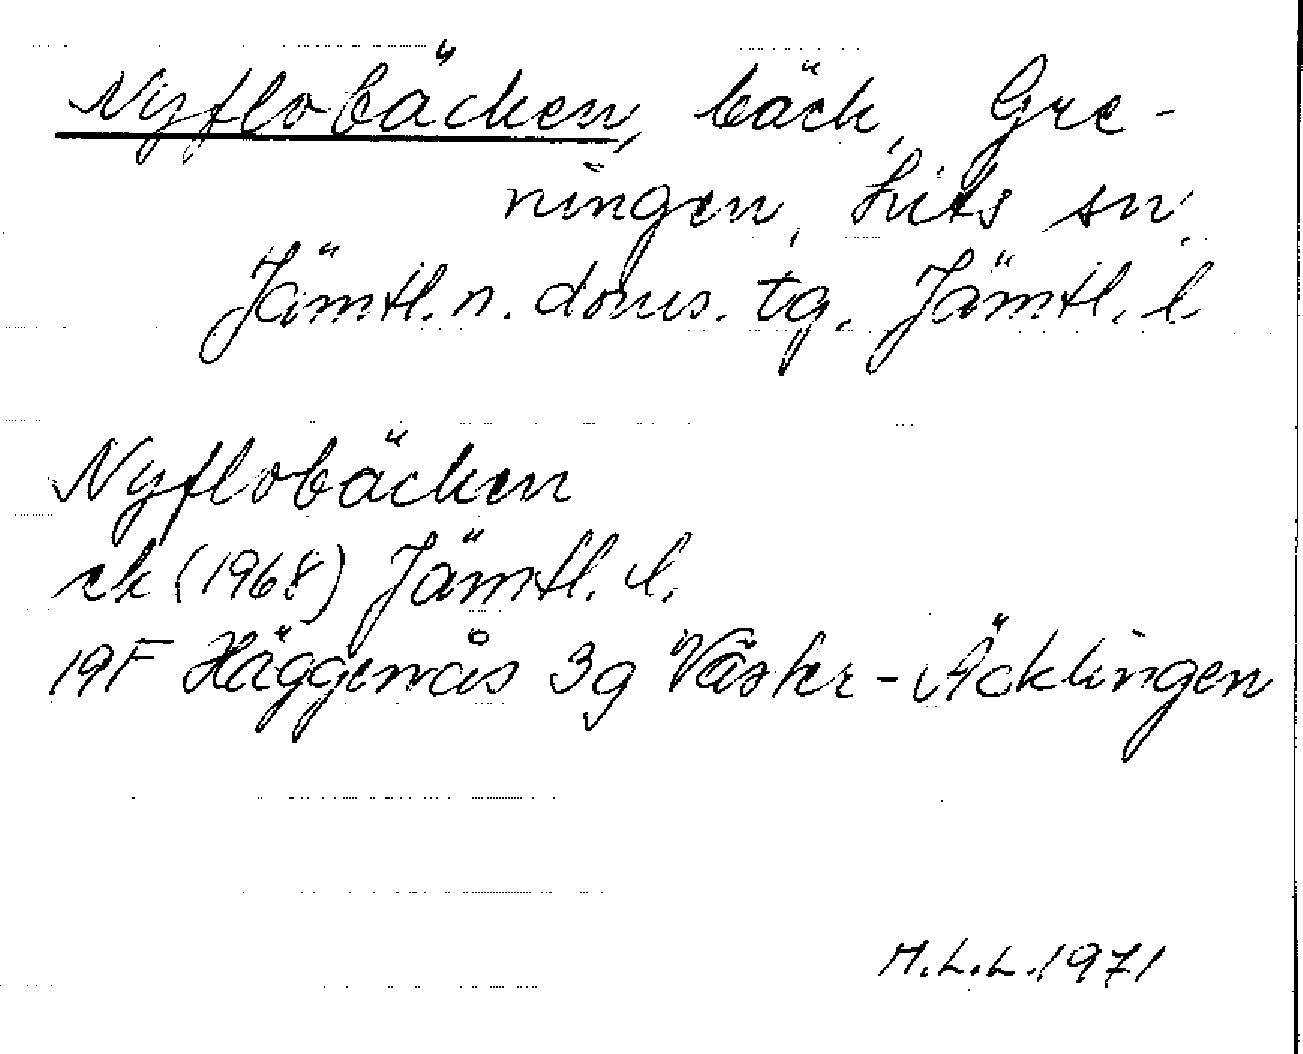 Nyflobäcken, bäck, Gre-
ningen, Lits sn,
Jämtl. n. doms. tg. Jämtl. l
Nyflobäcken
ek (1968) Jämtl. l.
19F Häggenås 3g Väster-Äcklingen
M.L.L. 1971